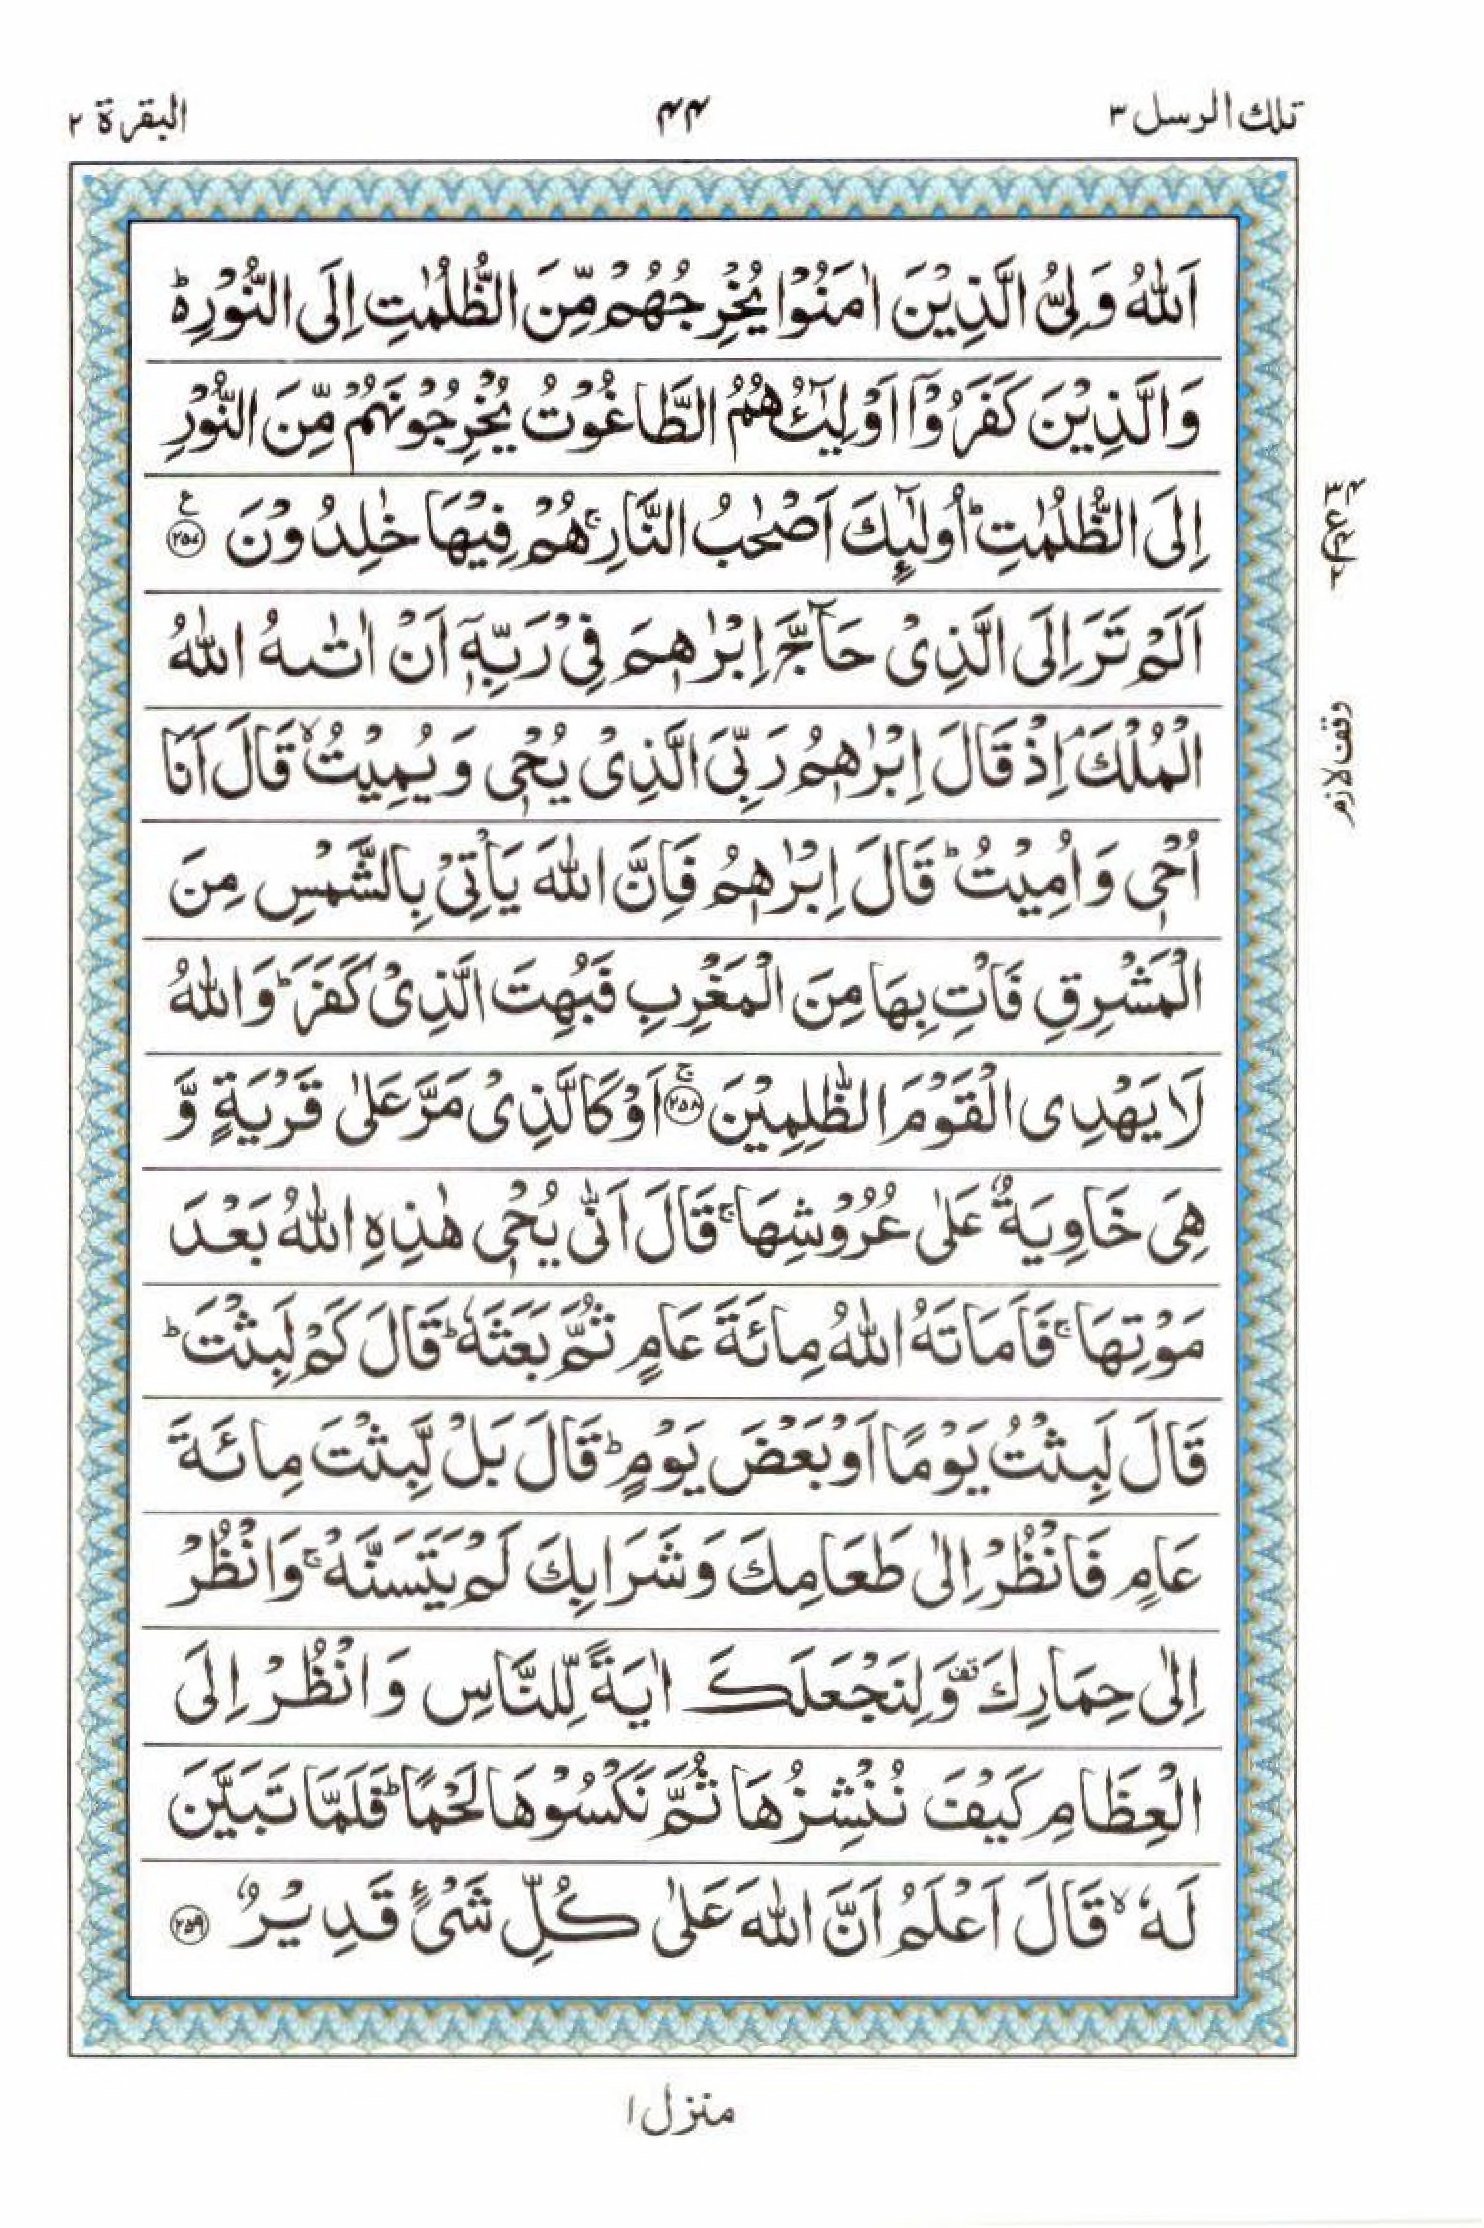 تلك الرسل ٣
۴۴
البقرة ٢
اَللّٰهُ وَلِیُّ الَّذِیْنَ اٰمَنُوْا یُخْرِجُهُمْ مِّنَ الظُّلُمٰتِ اِلَی النُّوْرِ۬ؕ
وَالَّذِیْنَ كَفَرُوْۤا اَوْلِیٰٓـُٔهُمُ الطَّاغُوْتُ یُخْرِجُوْنَهُمْ مِّنَ النُّوْرِ
اِلَی الظُّلُمٰتِؕ اُولٰٓىِٕكَ اَصْحٰبُ النَّارِۚ هُمْ فِیْهَا خٰلِدُوْنَ ﴿۲۵۷﴾ ع
اَلَمْ تَرَ اِلَی الَّذِیْ حَآجَّ اِبْرٰهٖمَ فِیْ رَبِّهٖۤ اَنْ اٰتٰىهُ اللّٰهُ
الْمُلْكَۘ اِذْ قَالَ اِبْرٰهٖمُ رَبِّیَ الَّذِیْ یُحْیٖ وَیُمِیْتُۙ قَالَ اَنَا
اُحْیٖ وَاُمِیْتُؕ قَالَ اِبْرٰهٖمُ فَاِنَّ اللّٰهَ یَاْتِیْ بِالشَّمْسِ مِنَ
الْمَشْرِقِ فَاْتِ بِهَا مِنَ الْمَغْرِبِ فَبُهِتَ الَّذِیْ كَفَرَؕ وَاللّٰهُ
لَا یَهْدِی الْقَوْمَ الظّٰلِمِیْنَۚ ﴿۲۵۸﴾ اَوْ كَالَّذِیْ مَرَّ عَلٰی قَرْیَةٍ وَّ
هِیَ خَاوِیَةٌ عَلٰی عُرُوْشِهَاۚ قَالَ اَنّٰی یُحْیٖ هٰذِهِ اللّٰهُ بَعْدَ
مَوْتِهَاۚ فَاَمَاتَهُ اللّٰهُ مِائَةَ عَامٍ ثُمَّ بَعَثَهٗؕ قَالَ كَمْ لَبِثْتَؕ
قَالَ لَبِثْتُ یَوْمًا اَوْ بَعْضَ یَوْمٍؕ قَالَ بَلْ لَّبِثْتَ مِائَةَ
عَامٍ فَانْظُرْ اِلٰی طَعَامِكَ وَشَرَابِكَ لَمْ یَتَسَنَّهْۚ وَانْظُرْ
اِلٰی حِمَارِكَ قف وَلِنَجْعَلَكَ اٰیَةً لِّلنَّاسِ وَانْظُرْ اِلَی
الْعِظَامِ كَیْفَ نُنْشِزُهَا ثُمَّ نَكْسُوْهَا لَحْمًاؕ فَلَمَّا تَبَیَّنَ
لَهٗۙ قَالَ اَعْلَمُ اَنَّ اللّٰهَ عَلٰی كُلِّ شَیْءٍ قَدِیْرٌ ﴿۲۵۹﴾
۳۴ ع ۲
وقف لازم
منزل ١